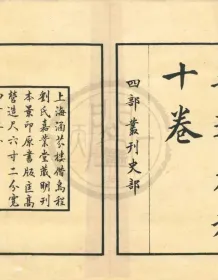 十卷
四部叢刊史部
上海涵芬樓借烏程
劉氏嘉業堂藏明刊
本景印原書版匡高
營造尺六寸二分寬